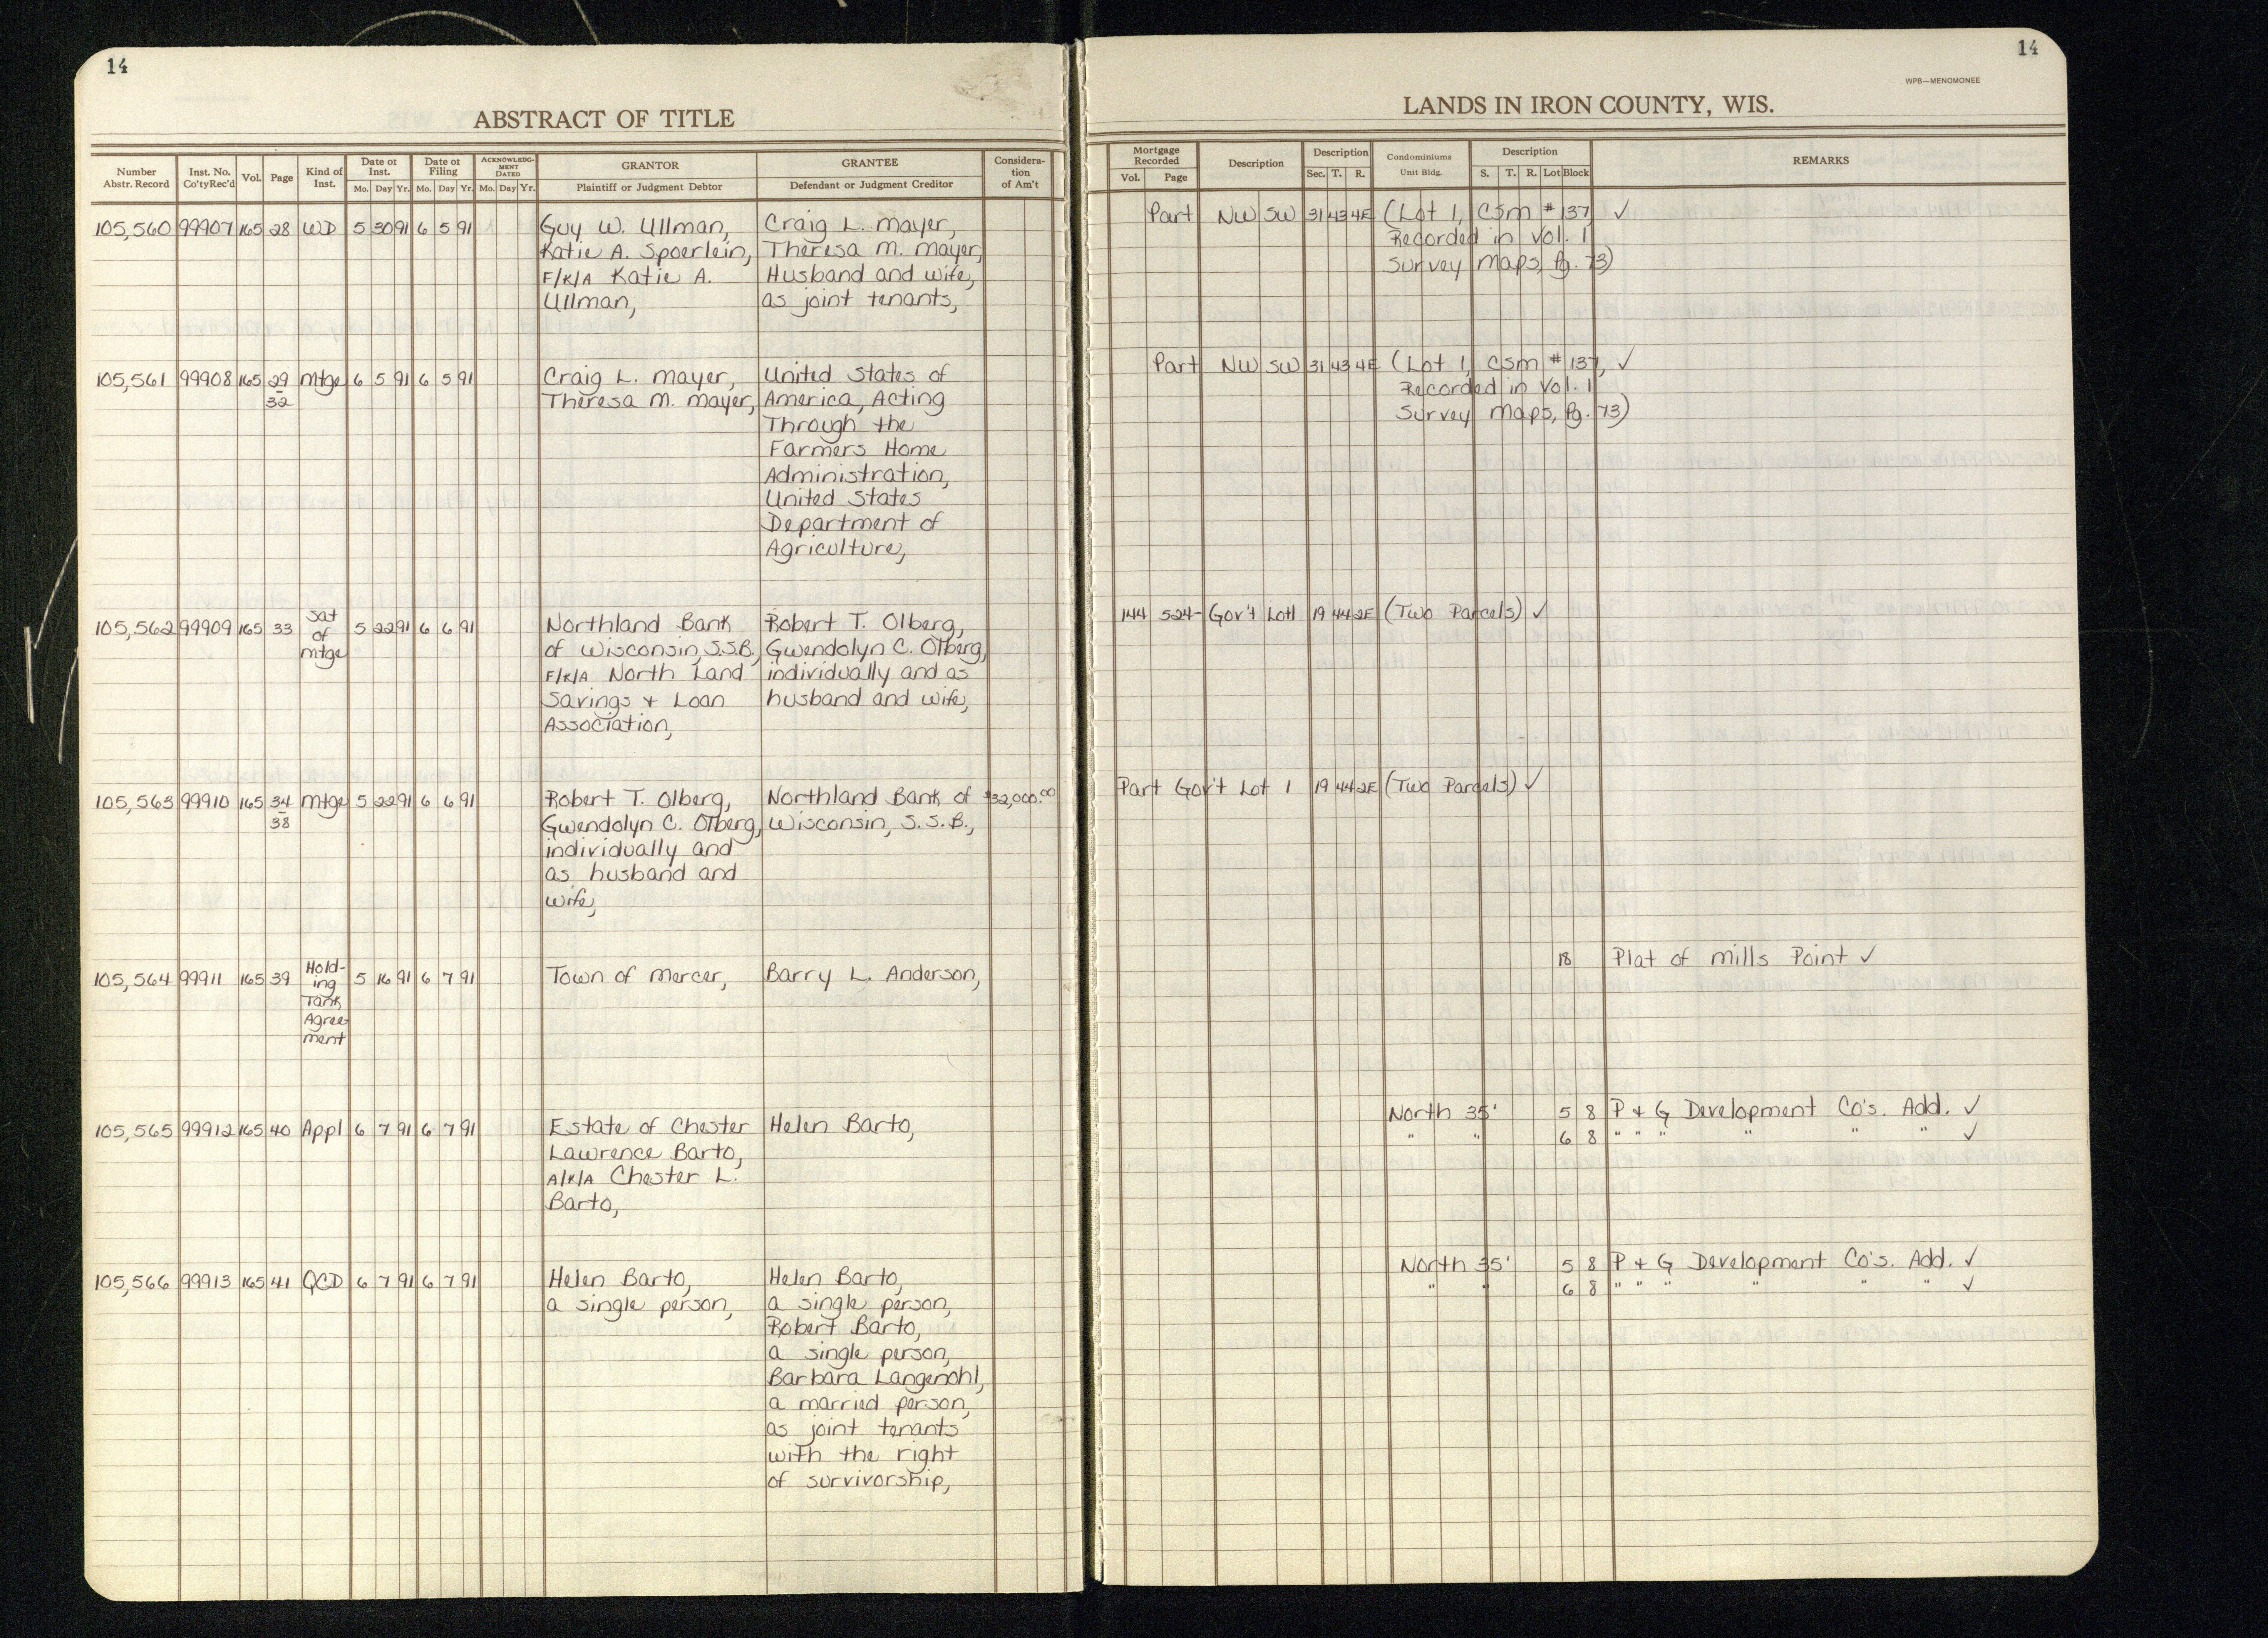 14
ABSTRACT OF TITLE
Number Abstr. Record Inst. No. Co'ty Rec'd Vol. Page Kind of Inst. Date of Inst. Mo. Day Yr. Date of Filing Mo. Day Yr. ACKNOWLEDGMENT DATED Mo. Day Yr. GRANTOR Plaintiff or Judgment Debtor GRANTEE Defendant or Judgment Creditor Consideration of Am't
105,560 99907 165 28 WD 5 30 91 6 5 91 Guy W. Ullman, Craig L. Mayer,
Katie A. Spoerlein, Theresa M. Mayer,
F/K/A Katie A. Husband and wife,
Ullman, as joint tenants,
105,561 99908 165 29 Mtge 6 5 91 6 5 91 Craig L. Mayer, United States of
32 Theresa M. Mayer, America, Acting
Through the
Farmers Home
Administration,
United States
Department of
Agriculture,
105,562 99909 165 33 Sat of Mtge 5 22 91 6 6 91 Northland Bank Robert T. Olberg,
of Wisconsin, S.S.B., Gwendolyn C. Olberg,
F/K/A North Land individually and as
Savings + Loan husband and wife,
Association,
105,563 99910 165 34 Mtge 5 22 91 6 6 91 Robert T. Olberg, Northland Bank of $32,000.00
38 Gwendolyn C. Olberg, Wisconsin, S.S.B.,
individually and
as husband and
wife,
105,564 99911 165 39 Hold-ing Tank Agree-ment 5 16 91 6 7 91 Town of Mercer, Barry L. Anderson,
105,565 99912 165 40 Appl 6 7 91 6 7 91 Estate of Chester Helen Barto,
Lawrence Barto,
A/K/A Chester L.
Barto,
105,566 99913 165 41 QCD 6 7 91 6 7 91 Helen Barto, Helen Barto,
a single person, a single person,
Robert Barto,
a single person,
Barbara Langenohl,
a married person,
as joint tenants
with the right
of survivorship,
14
WPB—MENOMONEE
LANDS IN IRON COUNTY, WIS.
Mortgage Recorded Vol. Page Description Description Sec. T. R. Condominiums Unit Bldg. Description S. T. R. Lot Block REMARKS
Part NW SW 31 43 4E (Lot 1, CSM # 137 ✓
Recorded in Vol. 1
Survey Maps, Pg. 73)
Part NW SW 31 43 4E (Lot 1, CSM # 137, ✓
Recorded in Vol. 1
Survey Maps, Pg. 73)
144 524- Gov't Lot 1 19 44 2E (Two Parcels) ✓
Part Gov't Lot 1 19 44 2E (Two Parcels) ✓
18 Plat of Mills Point ✓
North 35' 5 8 P + G Development Co's. Add. ✓
" " 6 8 " " " " " " ✓
North 35' 5 8 P + G Development Co's. Add. ✓
" " 6 8 " " " " " " ✓